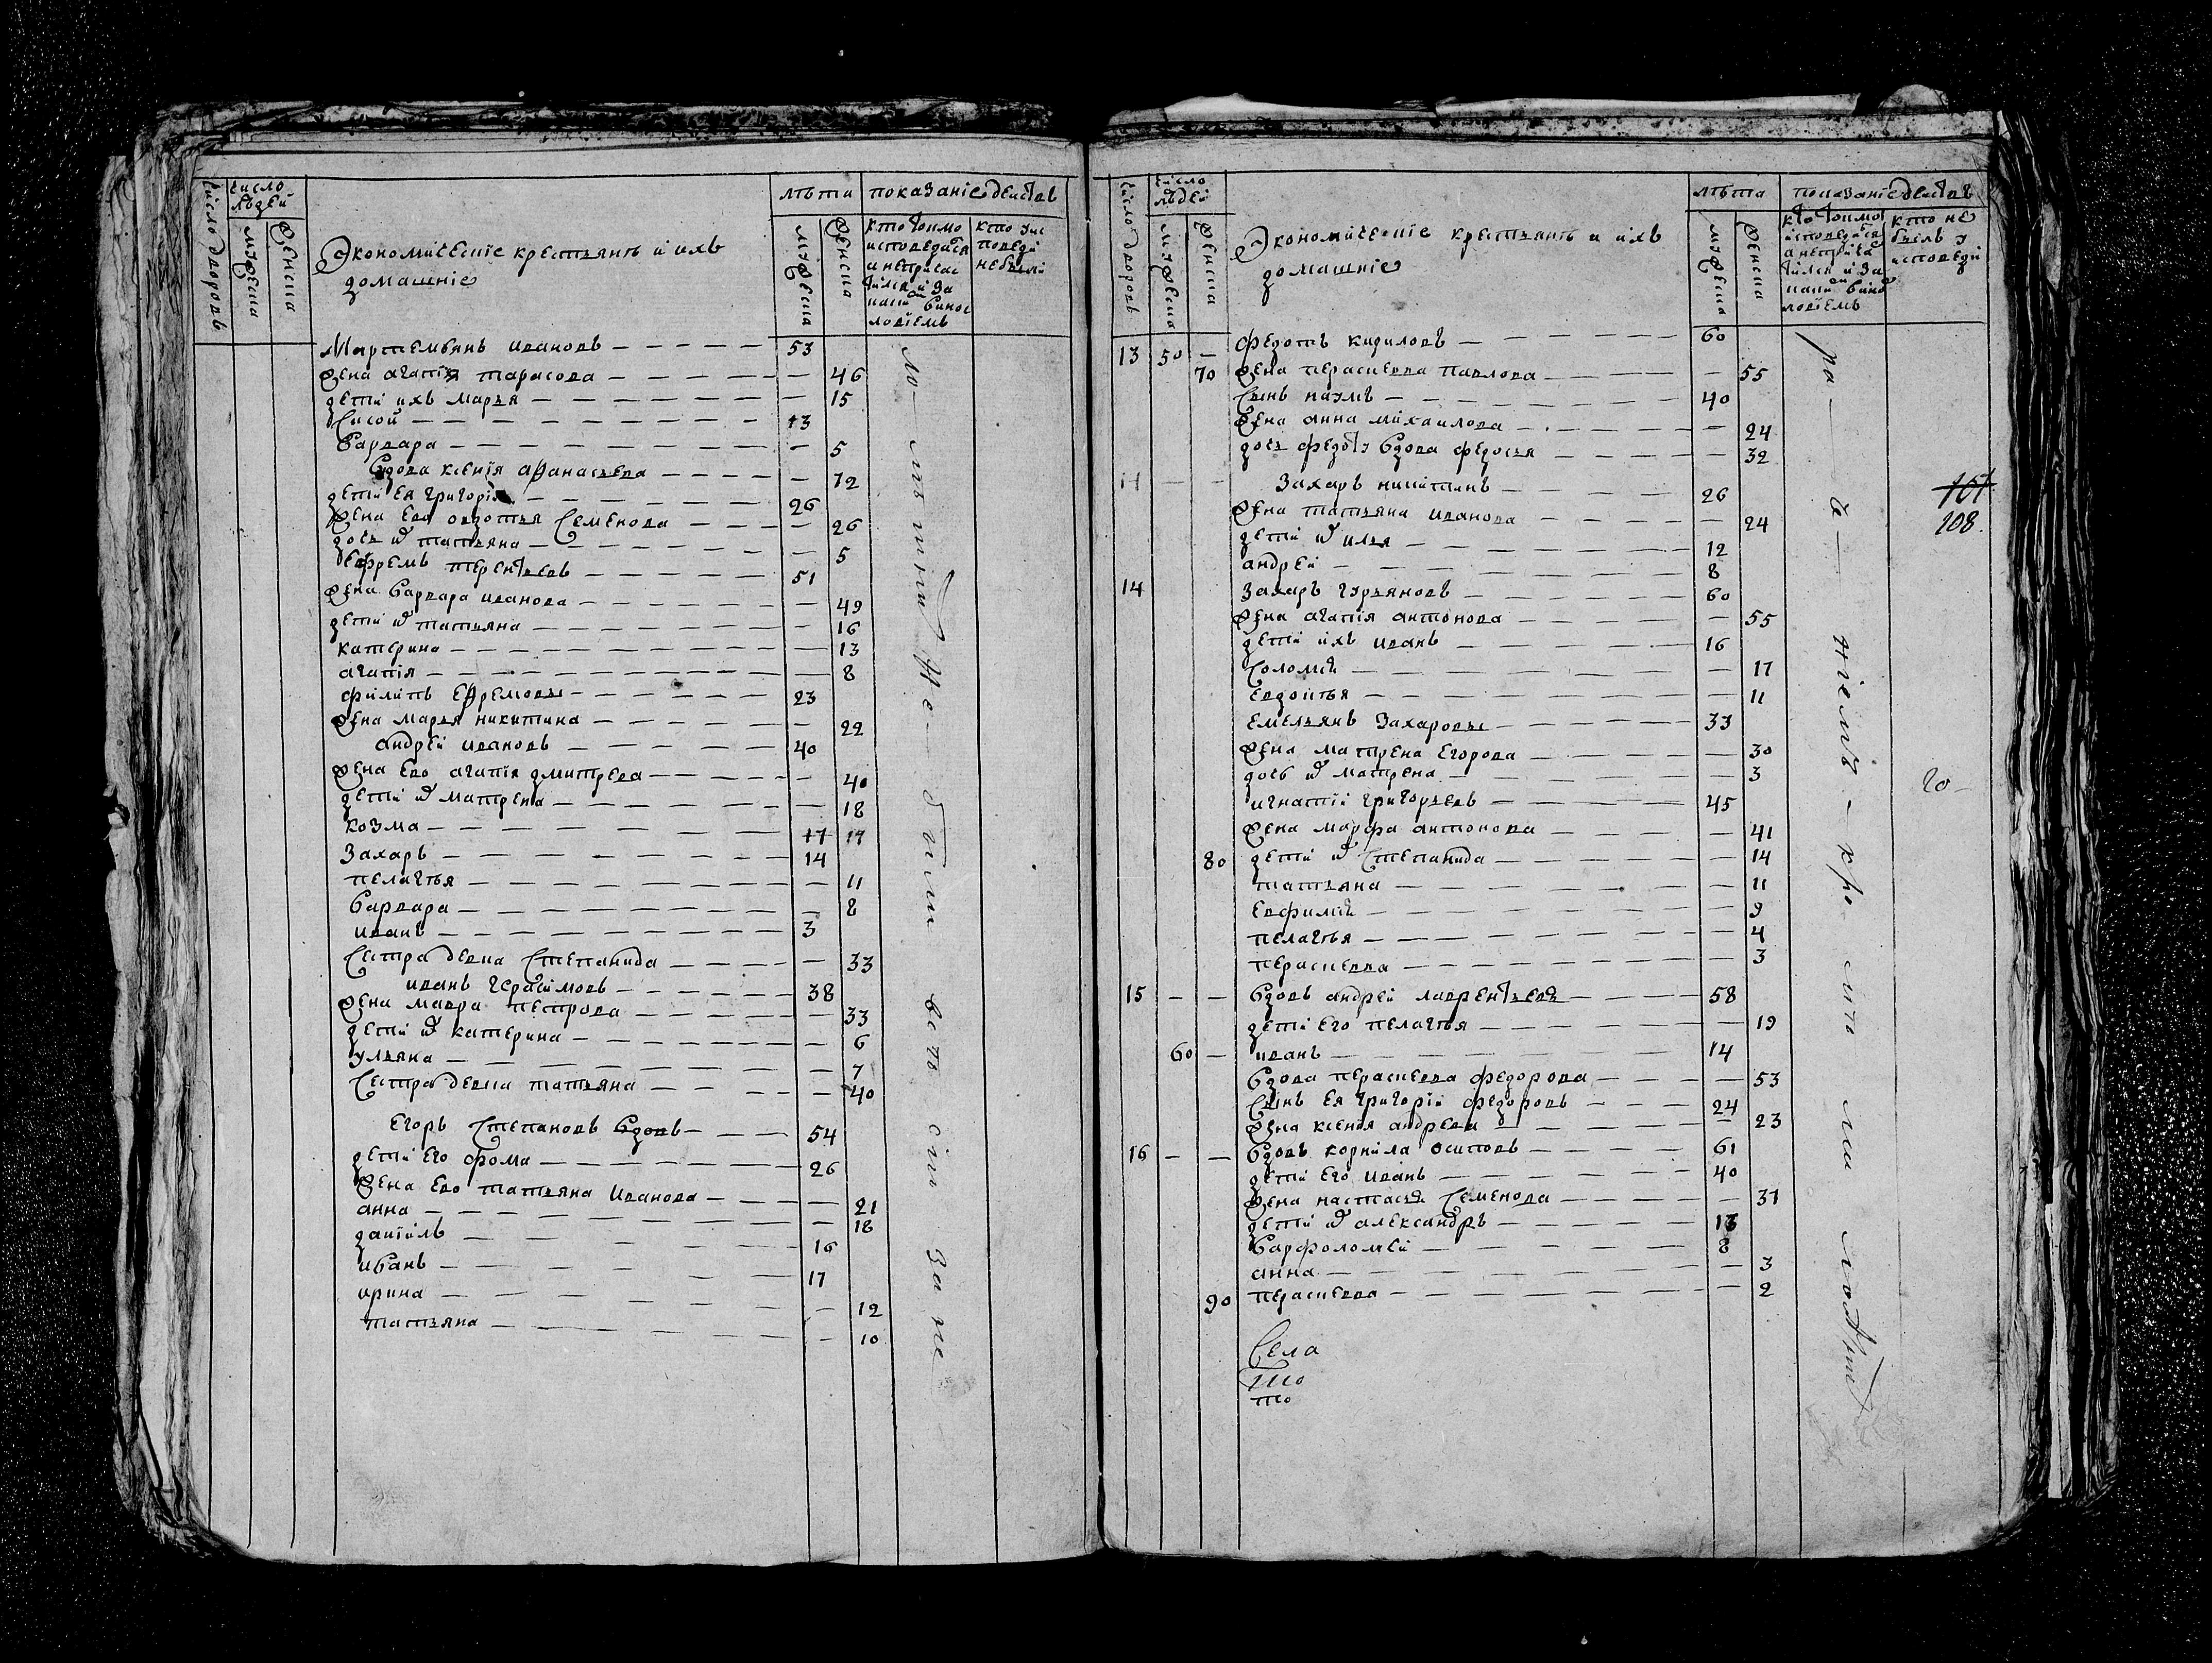 число дворовъ
число людей
мужеска
женска
Экономическiе крестьянъ и ихъ
домашнiе
лѣта
мужеска
женска
показанiе действъ
кто токмо
исповедался
а неприча
стился и за
каким вино
ловiемъ
кто у ис
поведи
небыли
Мартемьянъ Ивановъ — 53
жена агапiя тарасова — 46
дети ихъ марья — 15
Сисой — 13
Варвара — 5
Вдова ксенiя афанасьева — 72
дети ея григорiй — 26
жена Ево овдотья Семенова — 26
дочь их татьяна — 5
Ефремъ терентьевъ — 51
жена Варвара иванова — 49
дети их татьяна — 16
катерина — 13
агапiя — 8
филипъ Ефремовъ — 23
жена марья никитина — 22
андрей ивановъ — 40
жена Ево агапiя дмитрева — 40
дети их матрена — 18
козма — 17 17
Захаръ — 14
пелагья — 11
Варвара — 8
иванъ — 3
Сестра девка Степанида — 33
иванъ герасимовъ — 38
жена мавра петрова — 33
дети их катерина — 6
ульяна — 7
Сестра девка татьяна — 40
Егоръ Степановъ Вдовъ — 54
дети Его фома — 26
жена Ево татьяна Иванова — 21
анна — 18
данiилъ — 16
иванъ — 17
ирина — 12
татьяна — 10
число дворовъ
число людей
мужеска
женска
Экономическiе крестьянъ и ихъ
домашнiе
лѣта
мужеска
женска
показанiе действъ
кто токмо
исповедался
а неприча
стился и за
каким вино
ловiемъ
кто не
былъ у
исповеди
13 50 — федотъ кириловъ — 60
70 жена параскевва павлова — 55
Сынъ наумъ — 40
жена анна михаилова — 24
дочь федоту Вдова федосья — 32
14 — — Захаръ никитинъ — 26
жена татьяна иванова — 24
дети их илья — 12
андрей — 8
14 Захаръ гурьяновъ — 60
жена агапiя антонова — 55
дети ихъ иванъ — 16
Соломия — 17
Евдокья — 11
Емельянъ Захаровъ — 33
жена матрена Егорова — 30
дочь их матрена — 3
игнатiй григорьевъ — 45
жена марфа антонова — 41
80 дети их Степанида — 14
татьяна — 11
Евфимия — 9
пелагья — 4
параскевва — 3
15 — — Вдовъ андрей лаврентьевъ — 58
дети Его пелагья — 19
60 — иванъ — 14
Вдова параскевва федорова — 53
Сынъ Ея григорiй федоровъ — 24
жена ксенья андрева — 23
16 — — Вдовъ корнила осиповъ — 61
дети Его иванъ — 40
жена настасья Семенова — 37
дети их александръ — 13
Варфоломей — 8
анна — 3
90 параскевва — 2
Села
то
101
108.
20